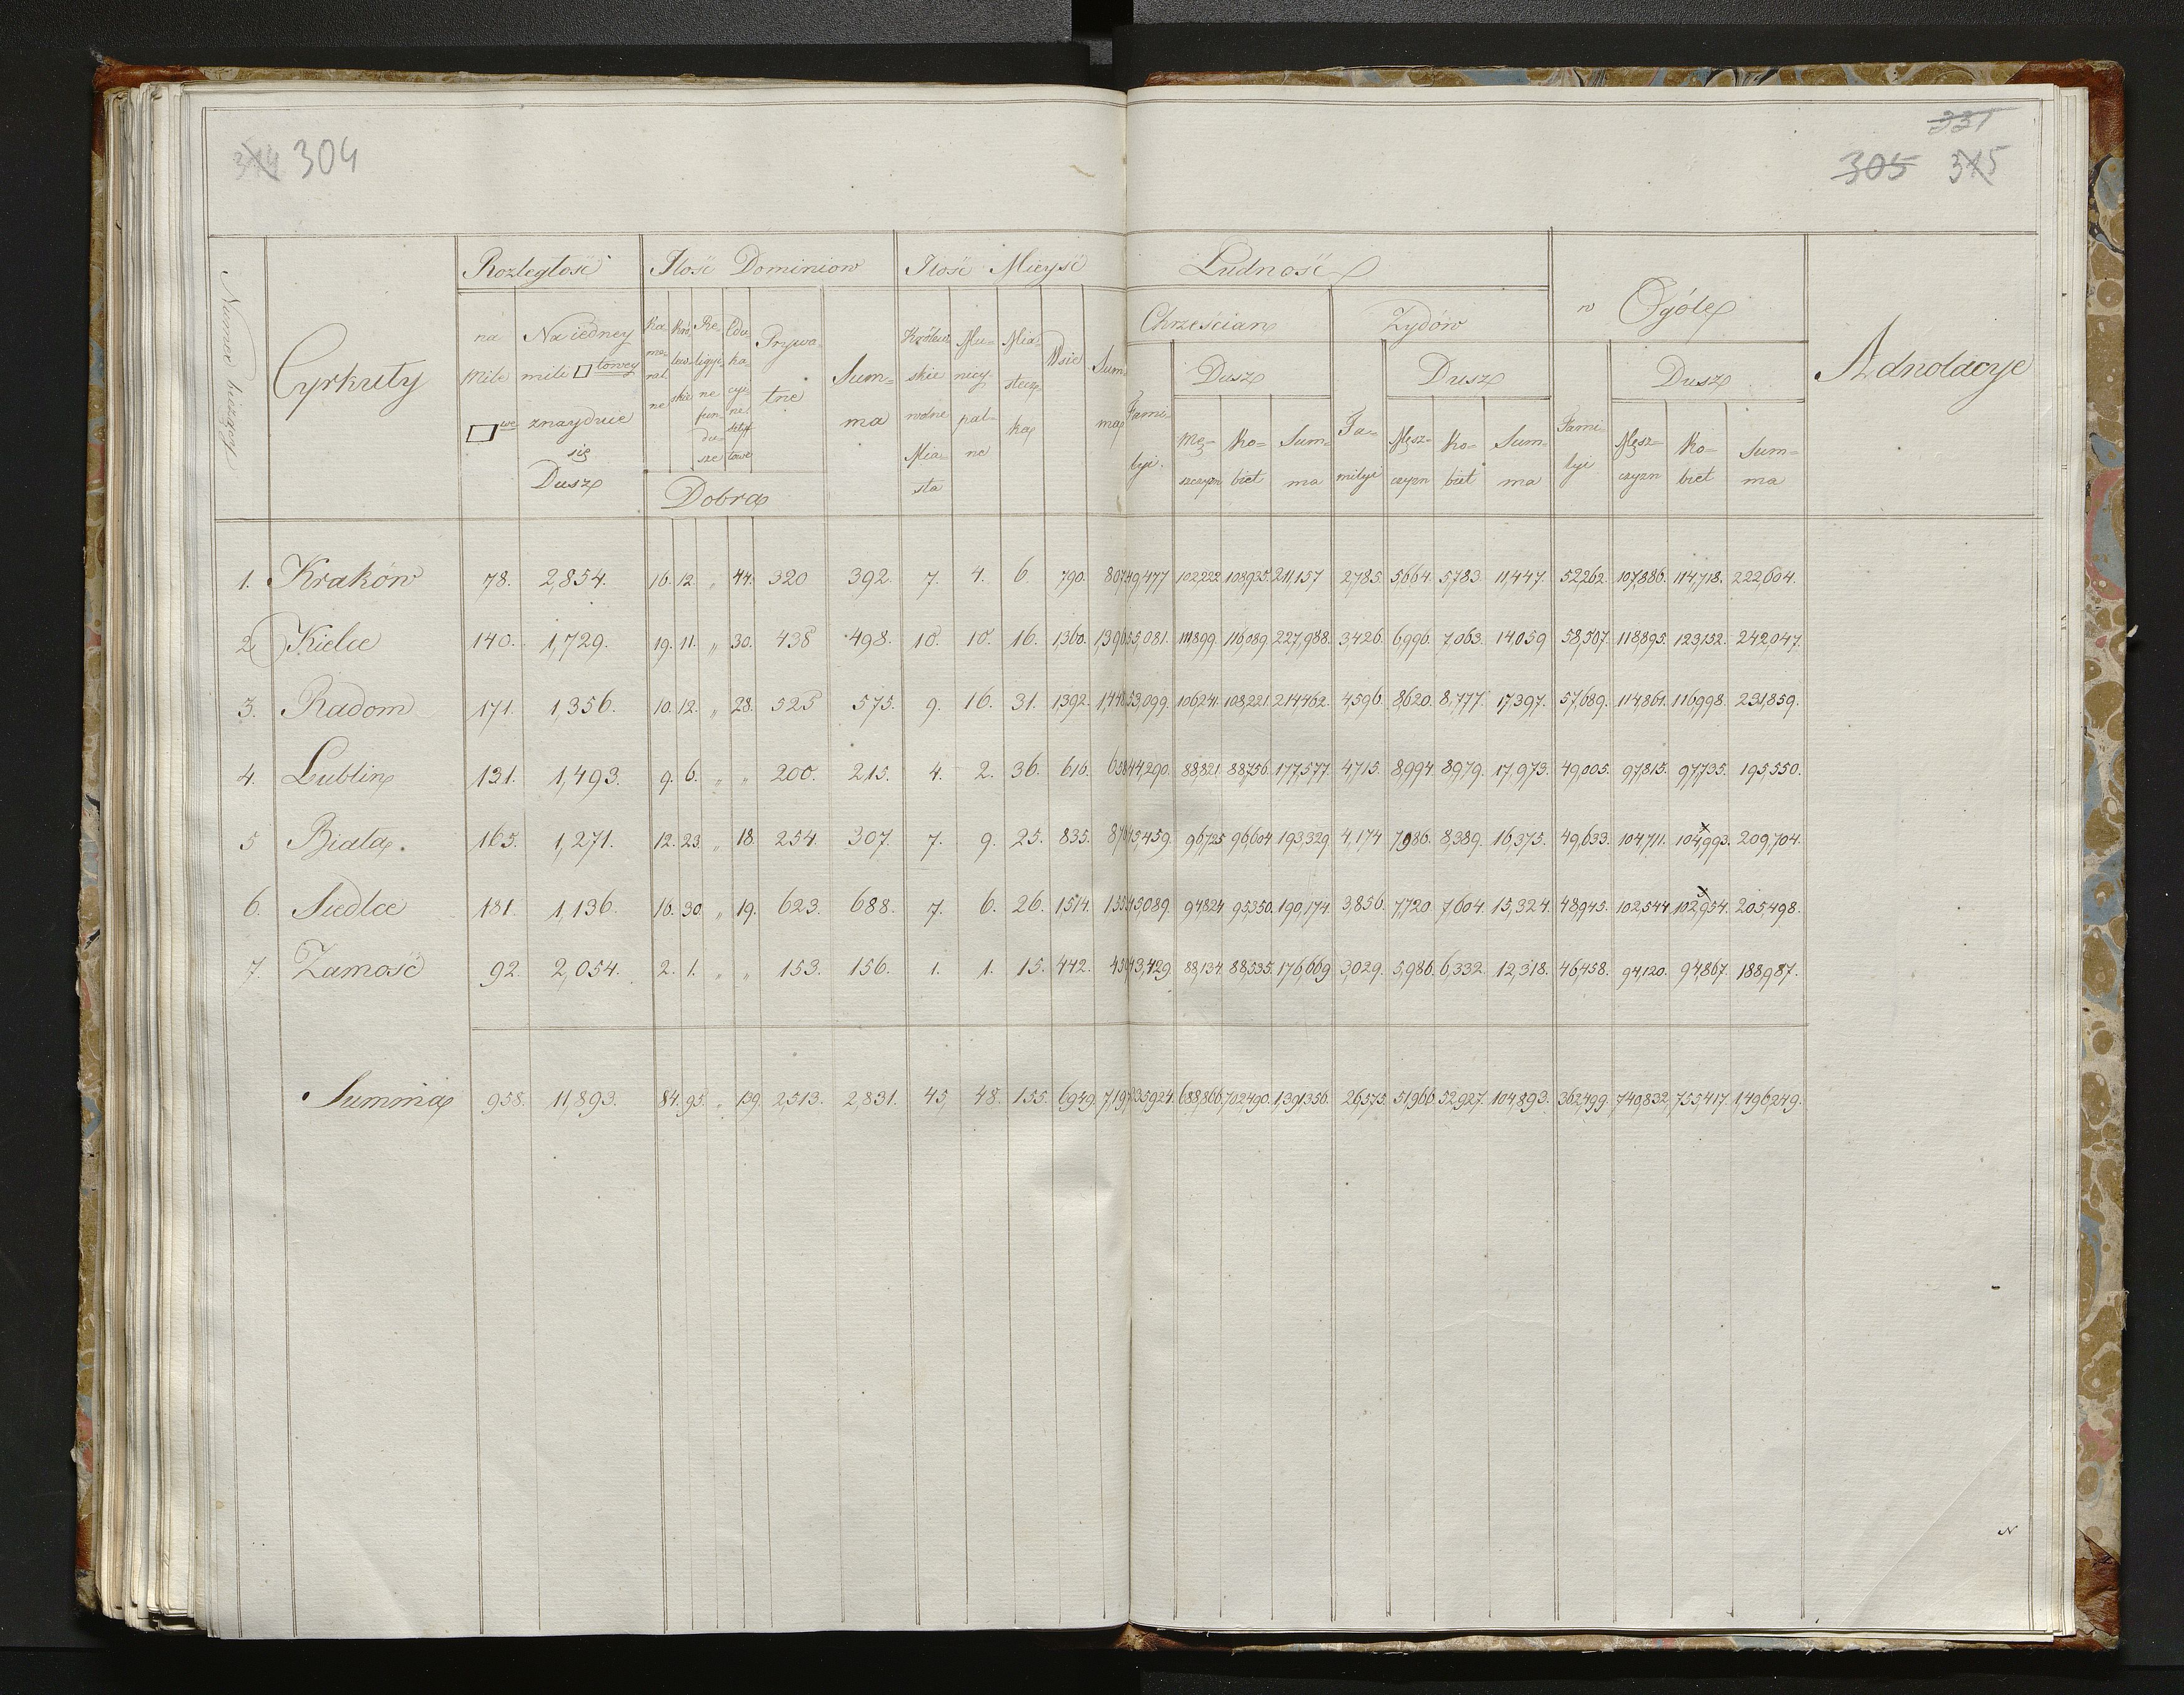 314 304
331
305 315
Numer bieżący
Cyrkuły
Rozległość
Ilość Dominiow
Ilość Mieysć
Ludność
w Ogóle
Adnotacye
na Mile □we
Na iedney mili □towey znayduie się Dusz
Ka=me=ral=ne
Kró=lew=skie
Re=ligyi=ne fun=du=sze
Edu=ka=cyi=ne
Prywa=tne
Sum=ma
Dobra
Królew=skie wolne Mia=sta
Mu=nicy=pal=ne
Mia=stecz=ka
Wsie
Sum=ma
Chrześcian
Żydów
Dusz
Dusz
Dusz
Fami=lyi
Mę=szczyzn
Ko=biet
Sum=ma
Fa=milyi
Męsz=czyzn
Ko=biet
Sum=ma
Fami=lyi
Męsz=czyzn
Ko=biet
Sum=ma
1. Kraków 78. 2,854. 16. 12. „ 44. 320 392. 7. 4. 6. 790. 807. 49,477 102,222 108,935. 211,157 2,785. 5,664. 5,783. 11,447. 52,262. 107,886. 114,718. 222,604.
2 Kielce 140. 1,729. 19. 11. „ 30. 438 498. 10. 10. 16. 1,360. 1,396. 55,081. 111,899. 116,089. 227,988. 3,426. 6,996. 7,063. 14,059 58,507. 118,895. 123,152. 242,047.
3. Radom 171. 1,356. 10. 12. „ 28. 525 575. 9. 16. 31. 1392. 1,448. 53,099. 106,241. 108,221. 214,462. 4,596. 8,620. 8,777. 17,397. 57,689. 114,861. 116,998. 231,859.
4. Lublin 131. 1,493. 9. 6. „ „ 200. 215. 4. 2. 36. 616. 658. 44,290. 88,821. 88,756. 177,577. 4,715. 8,994. 8,979. 17,973. 49,005. 97,815. 97,735. 195,550.
5 Biała. 165. 1,271. 12. 23. „ 18. 254. 307. 7. 9. 25. 835. 876. 45,459. 96,725 96,604 193,329 4,174 7,986. 8,389. 16,375. 49,633. 104,711. 104,993. 209,704.
6. Siedlce 181. 1,136. 16. 30. „ 19. 623. 688. 7. 6. 26. 1,514. 1,553. 45,089. 94,824 95,350. 190,174. 3,856. 7,720. 7,604. 15,324. 48,945. 102,544. 102,954. 205,498.
7. Zamość 92. 2,054. 2. 1. „ „ 153. 156. 1. 1. 15. 442. 459. 43,429. 88,134. 88,535. 176,669 3,029. 5,986. 6,332. 12,318. 46,458. 94,120. 94,867. 188,987.
Summa 958. 11,893. 84. 95. „ 139. 2,513. 2,831. 45, 48. 155. 6,949. 7,197. 335,924. 688,866. 702,490. 1,391,356. 26,575. 51,966. 52,927. 104,893. 362,499. 740,832. 755,417. 1,496,249.